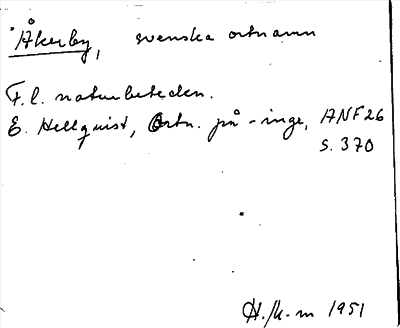 Åkerby, svenska ortnamn
F.l. naturbeteckn.
E. Hellquist, Ortn. på -inge, ANF 26
s. 370
H./k-m 1951